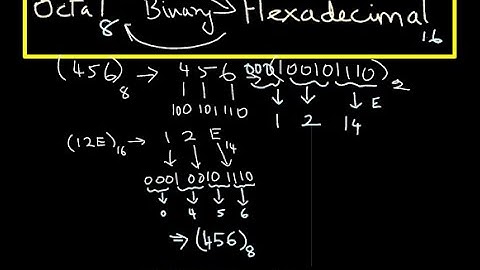 Octal 8 Binary Hexadecimal 16
(456)8 → 4 5 6 000(100101110)2
100 101 110 1 2 14 E
(12E)16 → 1 2 E 14
0001 0010 1110
0 4 5 6
⇒ (456)8